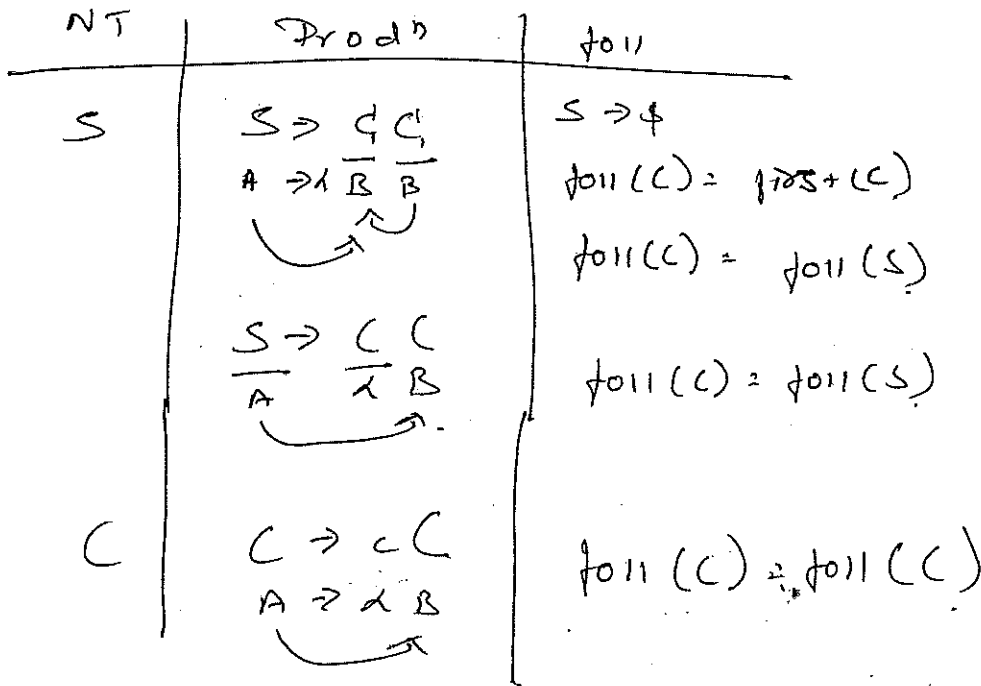 NT Prodⁿ foll
S S → C C S → $
A → α B B foll (C) = first (C)
foll (C) = foll (S)
S → C C
A α B foll (C) = foll (S)
C C → c C foll (C) = foll (C)
A → α B